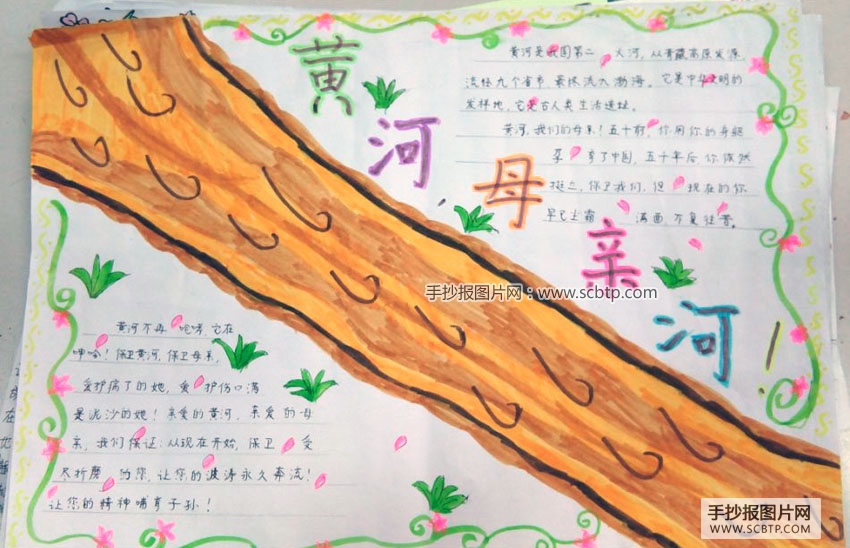 黄
河
母
亲
河
!
黄河是我国第二大河,从青藏高原发源
流经九个省市 最终流入渤海。它是中华文明的
发祥地,它是古人类生活遗址。
黄河,我们的母亲!五十前,你用你的身躯
孕育了中国,五十年后你依然
挺立,保卫我们,但现在的你
早已尘霜满面,不复往昔。
手抄报图片网:www.scbtp.com
黄河不再咆哮,它在
呻吟!保卫黄河,保卫母亲,
爱护病了的她,爱护伤口满
是泥沙的她!亲爱的黄河,亲爱的母
亲,我们保证:从现在开始,保卫受
尽折磨的您,让您的波涛永久奔流!
让您的精神哺育子孙!
手抄报图片网
WWW.SCBTP.COM